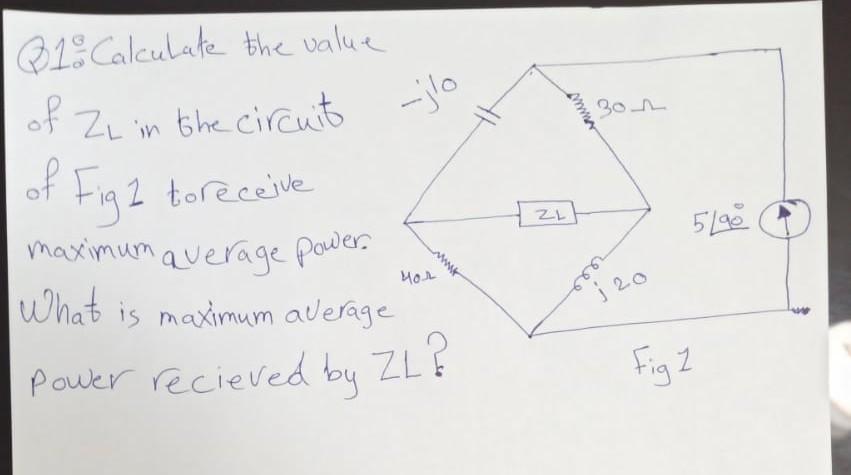 Q1: Calculate the value
of ZL in the circuit
of Fig 1 to receive
maximum average power.
What is maximum average
power recieved by ZL?
-j10
30Ω
ZL
5∠90°
40Ω
j20
Fig 1